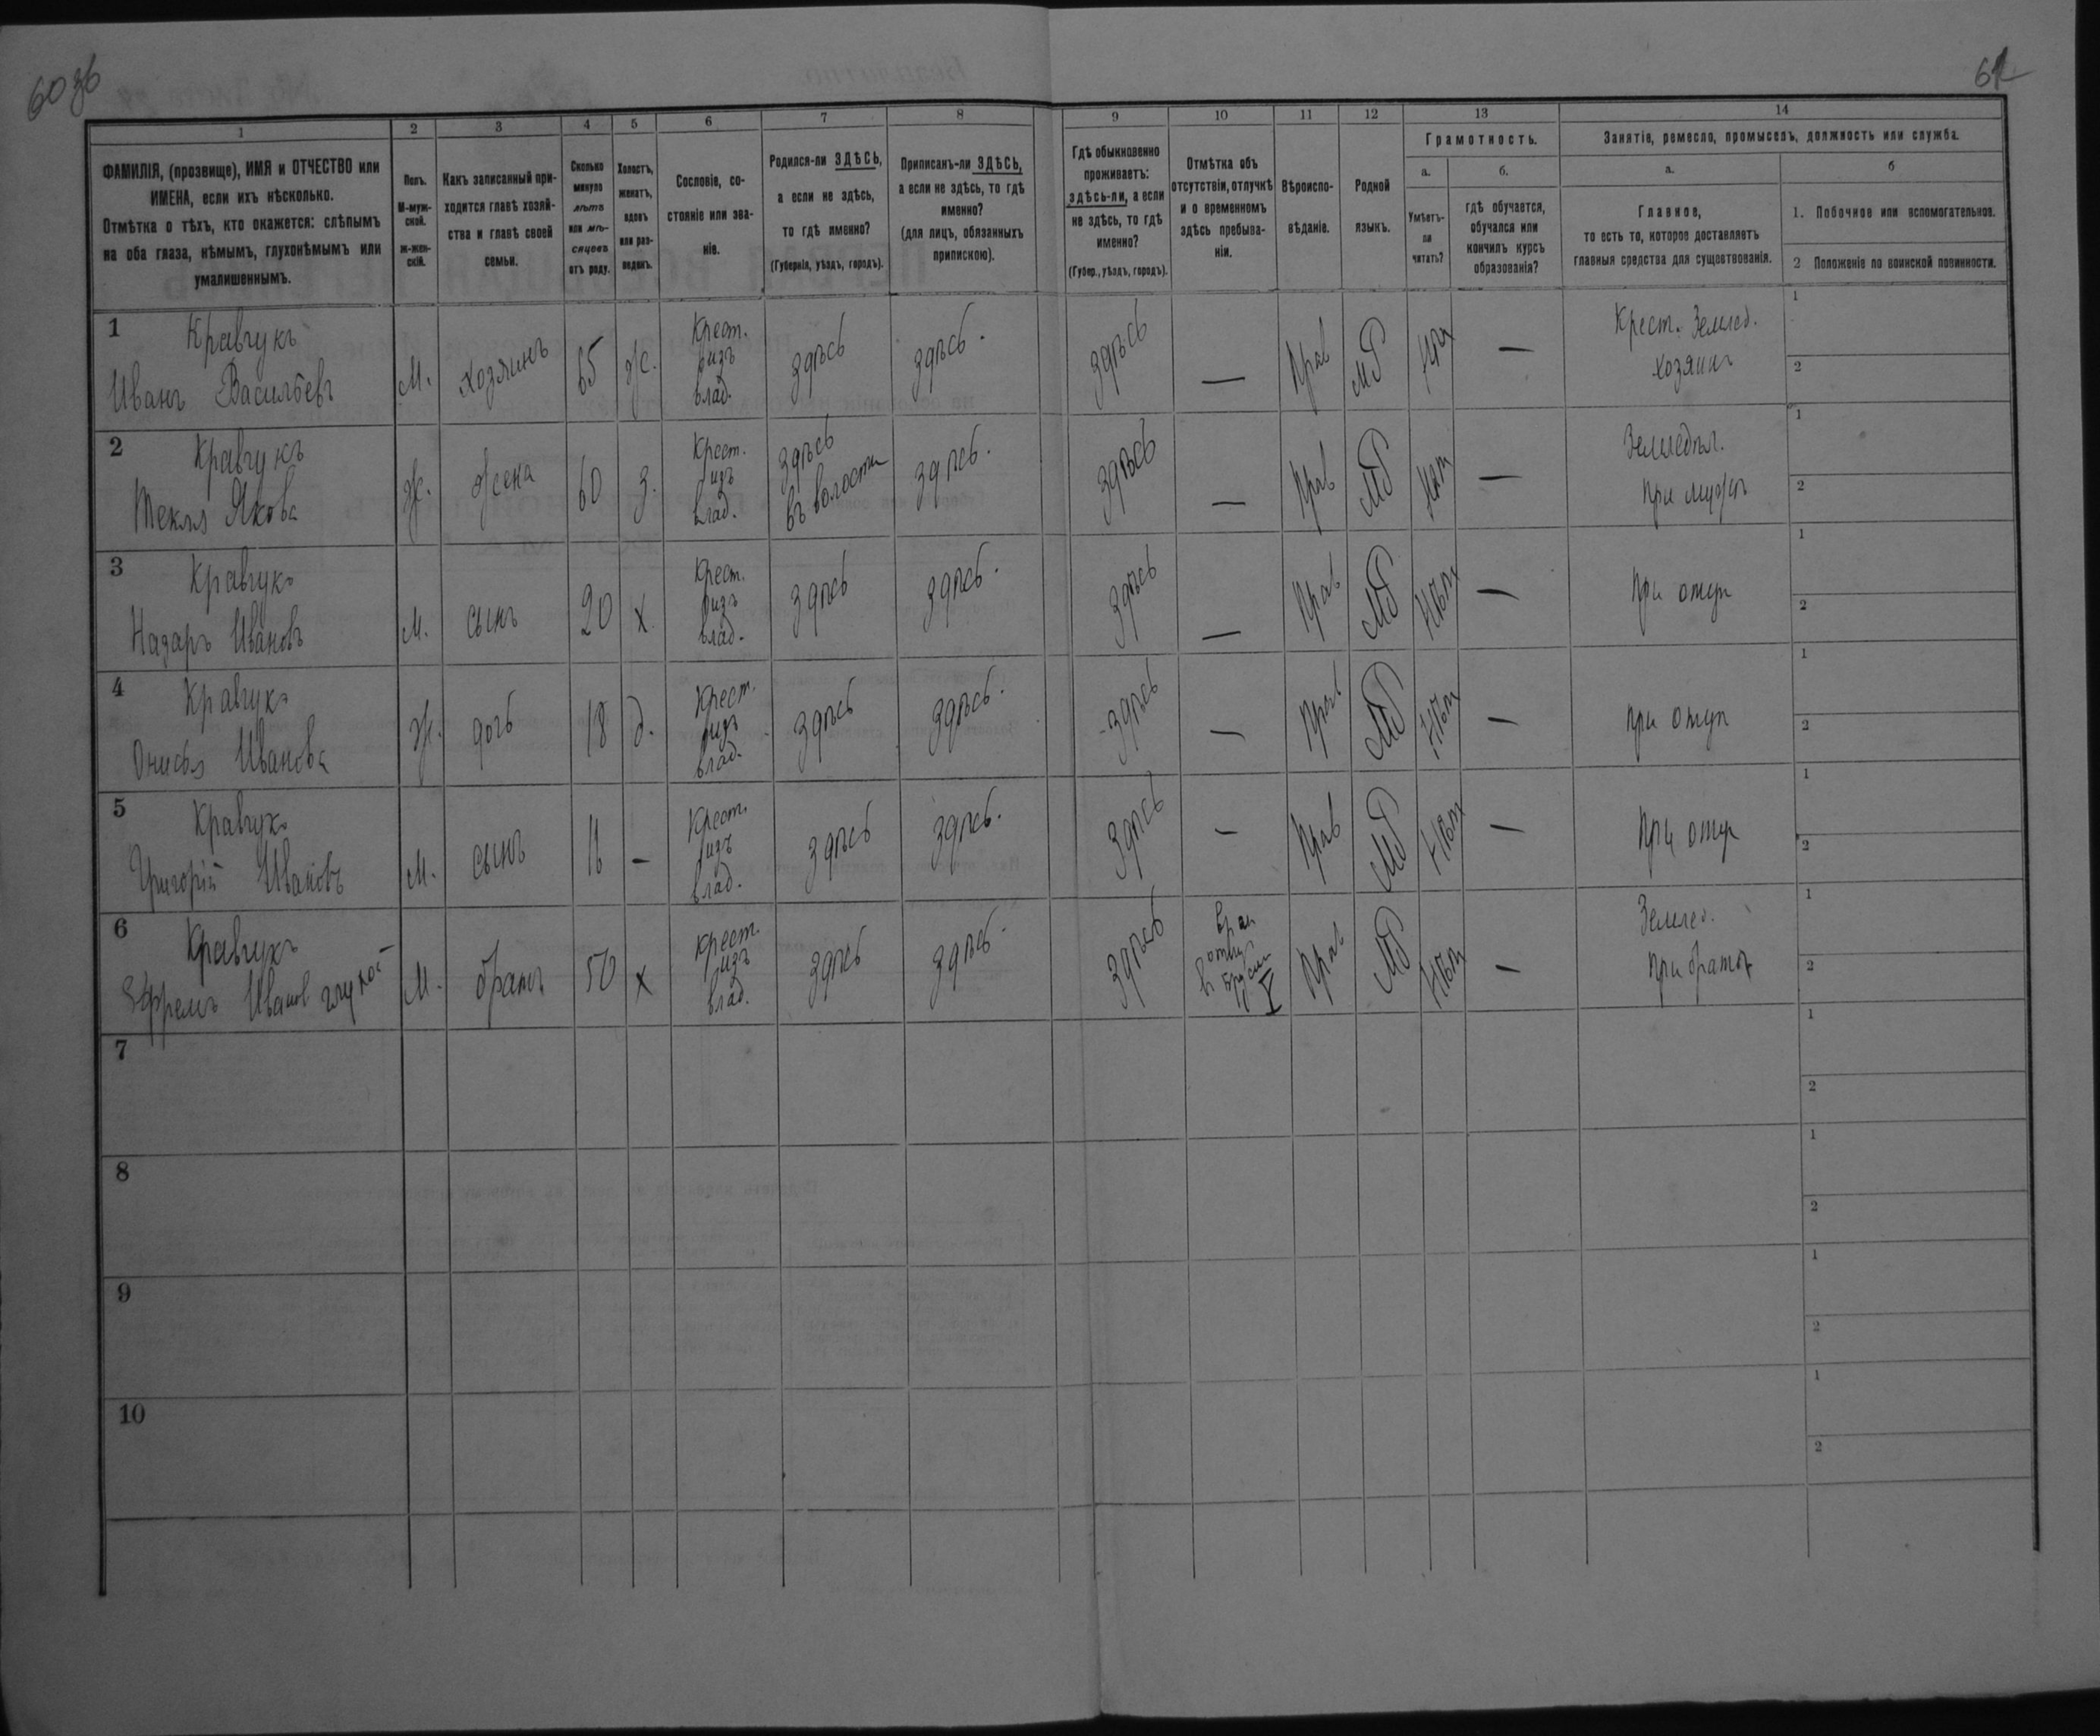 60 зб
61
1
2
3
4
5
6
7
8
9
10
11
12
13
14
ФАМИЛІЯ, (прозвище), ИМЯ и ОТЧЕСТВО или
ИМЕНА, если ихъ нѣсколько.
Отмѣтка о тѣхъ, кто окажется: слѣпымъ
на оба глаза, нѣмымъ, глухонѣмымъ или
умалишеннымъ.
Полъ.
М-муж-
ской.
ж-жен-
скій.
Какъ записанный при-
ходится главѣ хозяй-
ства и главѣ своей
семьи.
Сколько
минуло
лѣтъ
или мѣ-
сяцевъ
отъ роду.
Холостъ,
женатъ,
вдовъ
или раз-
веденъ.
Сословіе, со-
стояніе или зва-
ніе.
Родился-ли ЗДѢСЬ,
а если не здѣсь,
то гдѣ именно?
(Губернія, уѣздъ, городъ).
Приписанъ-ли ЗДѢСЬ,
а если не здѣсь, то гдѣ
именно?
(для лицъ, обязанныхъ
припискою).
Гдѣ обыкновенно
проживаетъ:
здѣсь-ли, а если
не здѣсь, то гдѣ
именно?
(Губер., уѣздъ, городъ).
Отмѣтка объ
отсутствіи, отлучкѣ
и о временномъ
здѣсь пребыва-
ніи.
Вѣроиспо-
вѣданіе.
Родной
языкъ.
Грамотность.
а.
б.
Умѣетъ-
ли
читать?
гдѣ обучается,
обучался или
кончилъ курсъ
образованія?
Занятіе, ремесло, промыселъ, должность или служба.
а.
б
Главное,
то есть то, которое доставляетъ
главныя средства для существованія.
1. Побочное или вспомогательное.
2 Положеніе по воинской повинности.
1 Кравчукъ
Иванъ Васильевъ
М. хозяинъ 65 ж.
Крест.
изъ
влад.
здѣсь здѣсь. здѣсь — Прав МР — Крест. Землед.
хозяинъ
1
2
2 Кравчукъ
Текля Якова
Ж. жена 60 з.
Крест.
изъ
влад.
здѣсь
въ волости
здѣсь. здѣсь — Прав МР Нѣт — Земледѣл.
при мужѣ
1
2
3 Кравчукъ
Назаръ Ивановъ
М. сынъ 20 х
Крест.
изъ
влад.
здѣсь здѣсь. здѣсь — Прав МР Нѣт — при отцѣ
1
2
4 Кравчукъ
Онисья Иванова
Ж. дочь 18 д.
Крест.
изъ
влад.
здѣсь здѣсь. здѣсь — Прав МР Нѣт — при отцѣ
1
2
5 Кравчукъ
Григорій Ивановъ
М. сынъ —
Крест.
изъ
влад.
здѣсь здѣсь. здѣсь — Прав МР Нѣт — при отцѣ
1
2
6 Кравчукъ
Ефремъ Иванов глухой
М. братъ 50 х
Крест.
изъ
влад.
здѣсь здѣсь. здѣсь
V
Прав МР Нѣт — Землед.
при братѣ
1
2
7
1
2
8
1
2
9
1
2
10
1
2